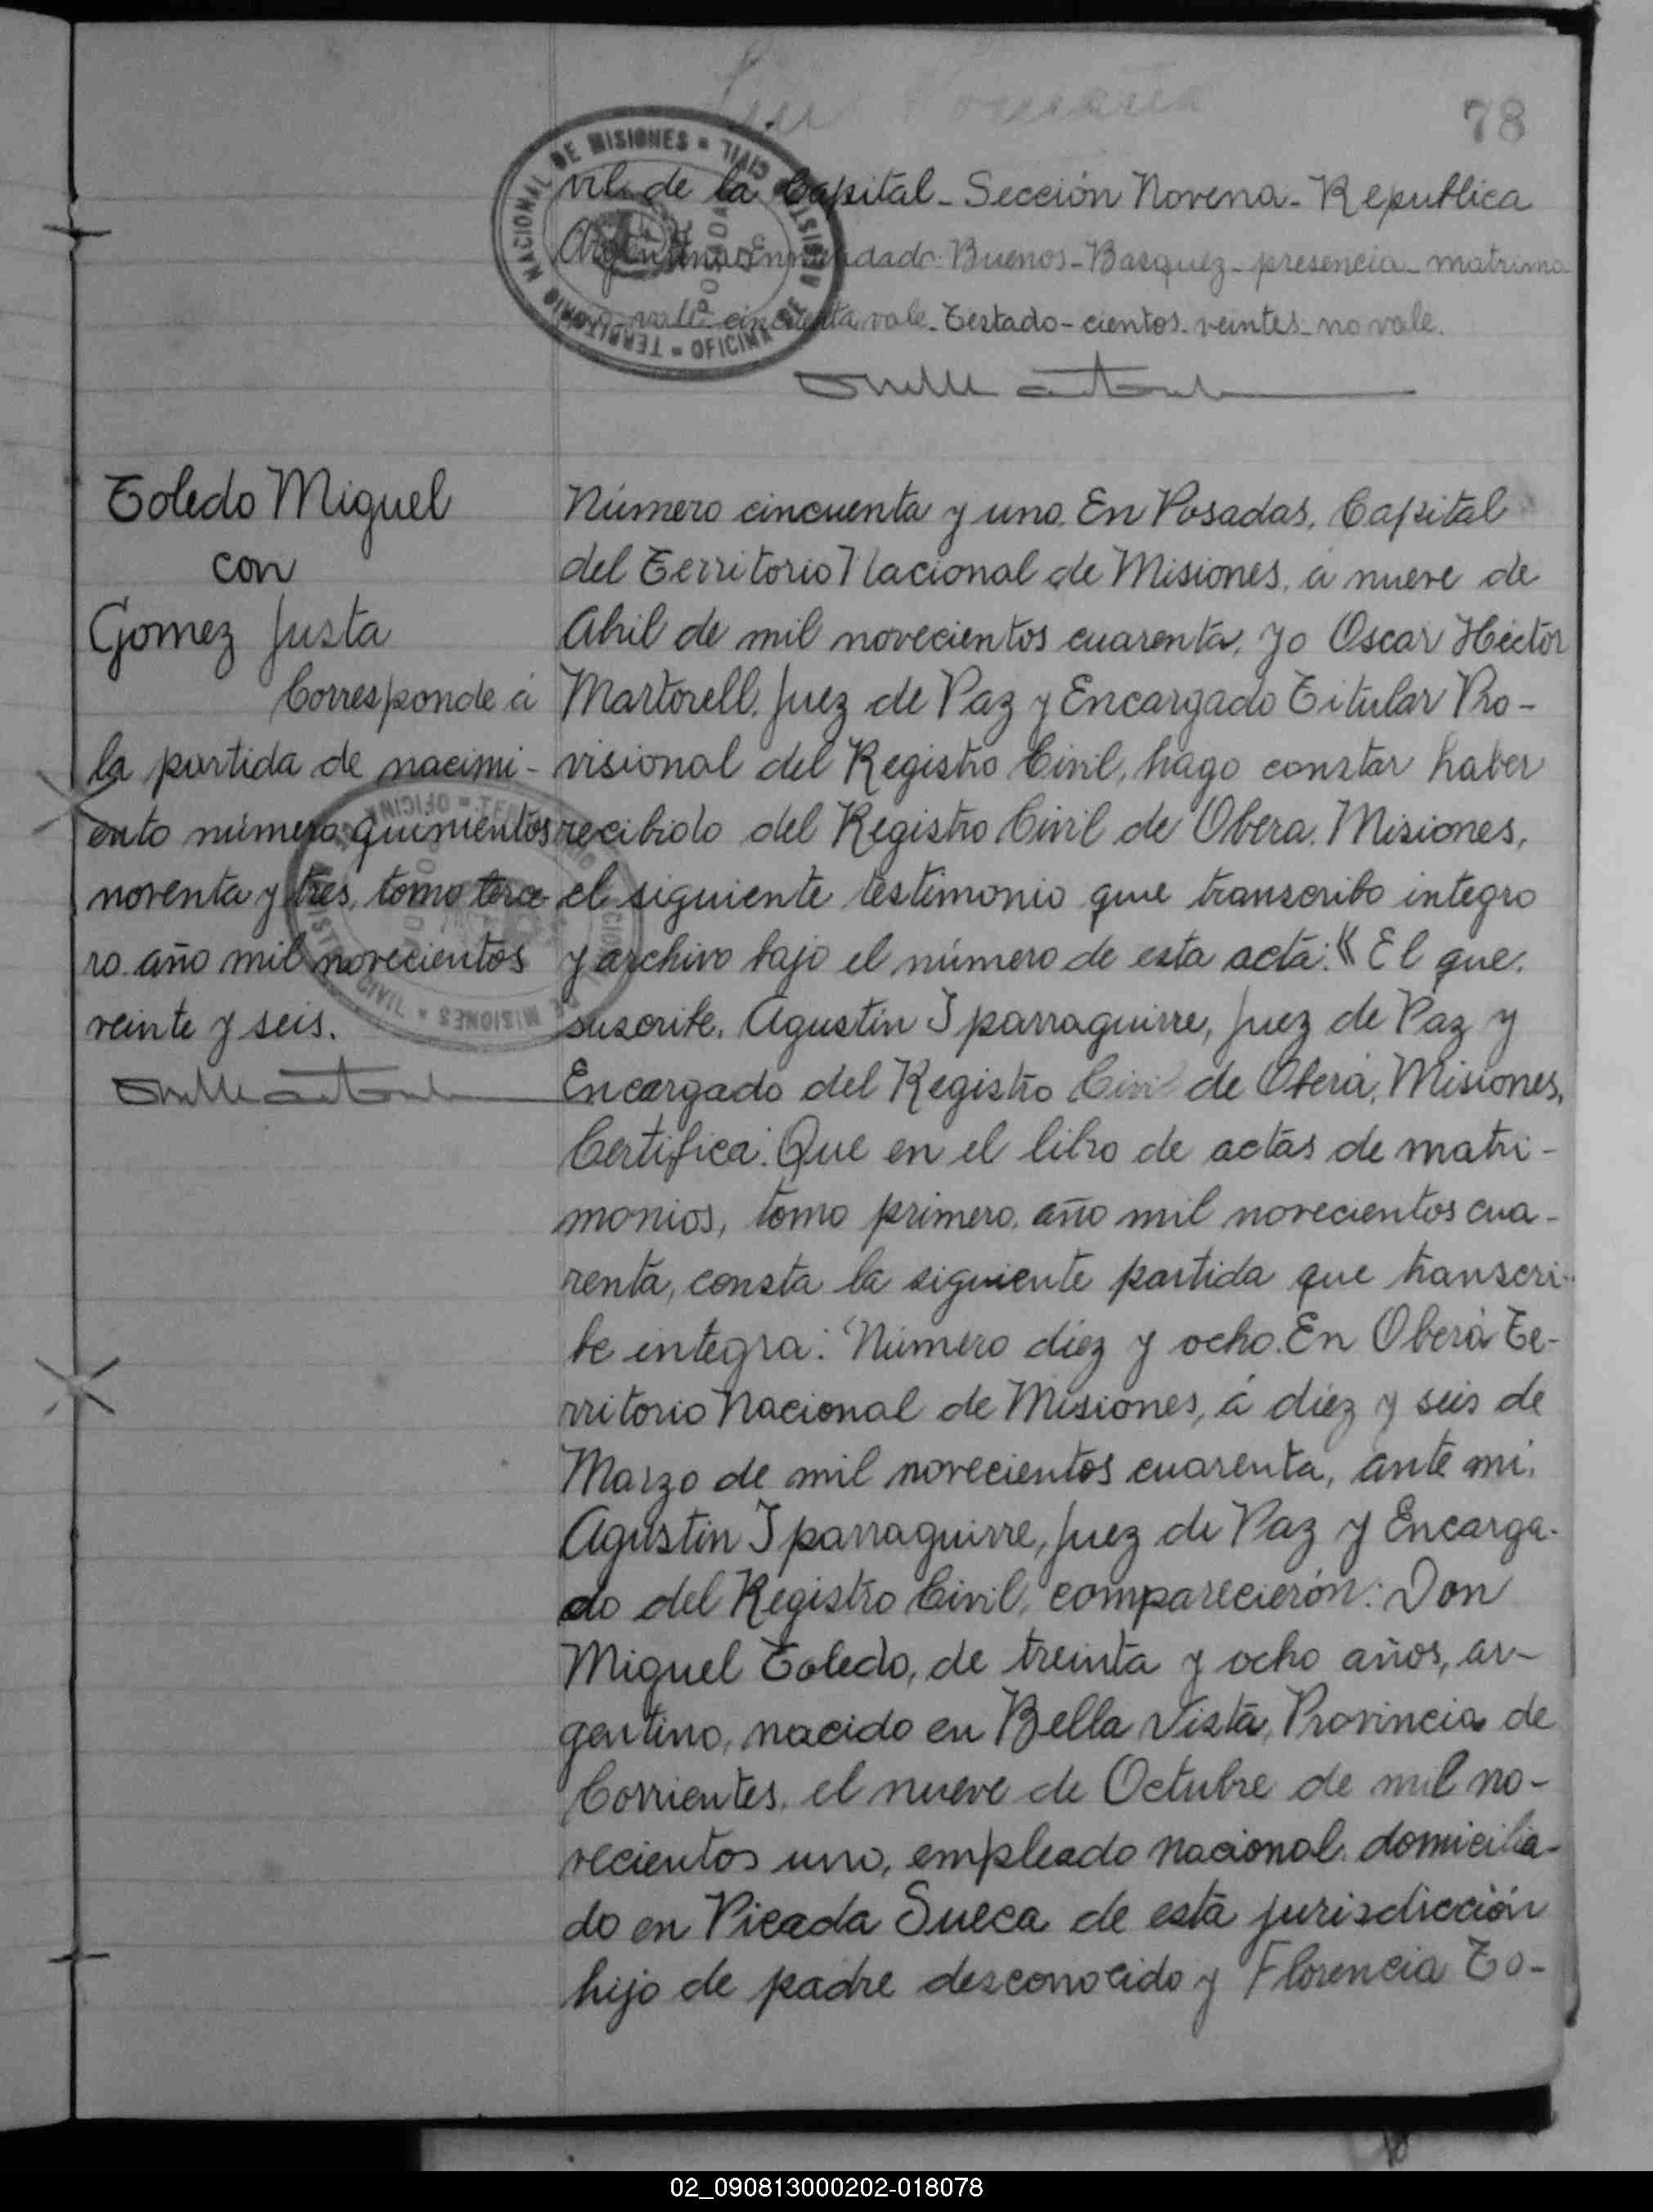 78
vil de la Capital - Sección Novena - Republica
Argentina Enmendado - Buenos - Basquez - presencia - matrimo
vale - cincuenta vale - Testado - cientos - veintes - no vale.
Toledo Miguel
con
Gomez Justa
Corresponde á
la partida de nacimi-
ento número quinientos
noventa y tres, tomo terce
ro año mil novecientos
veinte y seis.
Número cincuenta y uno. En Posadas, Capital
del Territorio Nacional de Misiones, á nueve de
Abril de mil novecientos cuarenta, yo Oscar Héctor
Martorell, Juez de Paz y Encargado Titular Pro-
visional del Registro Civil, hago constar haber
recibido del Registro Civil de Obera, Misiones,
el siguiente testimonio que transcribo integro
y archivo bajo el número de esta acta: "El que
suscribe, Agustin Iparraguirre, Juez de Paz y
Encargado del Registro Civil de Oberá, Misiones,
Certifica: Que en el libro de actas de matri-
monios, tomo primero, año mil novecientos cua-
renta, consta la siguiente partida que transcri-
be integra: "Número diez y ocho. En Oberá Te-
rritorio Nacional de Misiones, á diez y seis de
Marzo de mil novecientos cuarenta, ante mi,
Agustin Iparraguirre, Juez de Paz y Encarga-
do del Registro Civil, comparecierón: Don
Miguel Toledo, de treinta y ocho años, ar-
gentino, nacido en Bella Vista, Provincia de
Corrientes, el nueve de Octubre de mil no-
vecientos uno, empleado nacional, domicilia-
do en Picada Sueca de esta jurisdicción
hijo de padre desconocido y Florencia To-
02_090813000202-018078